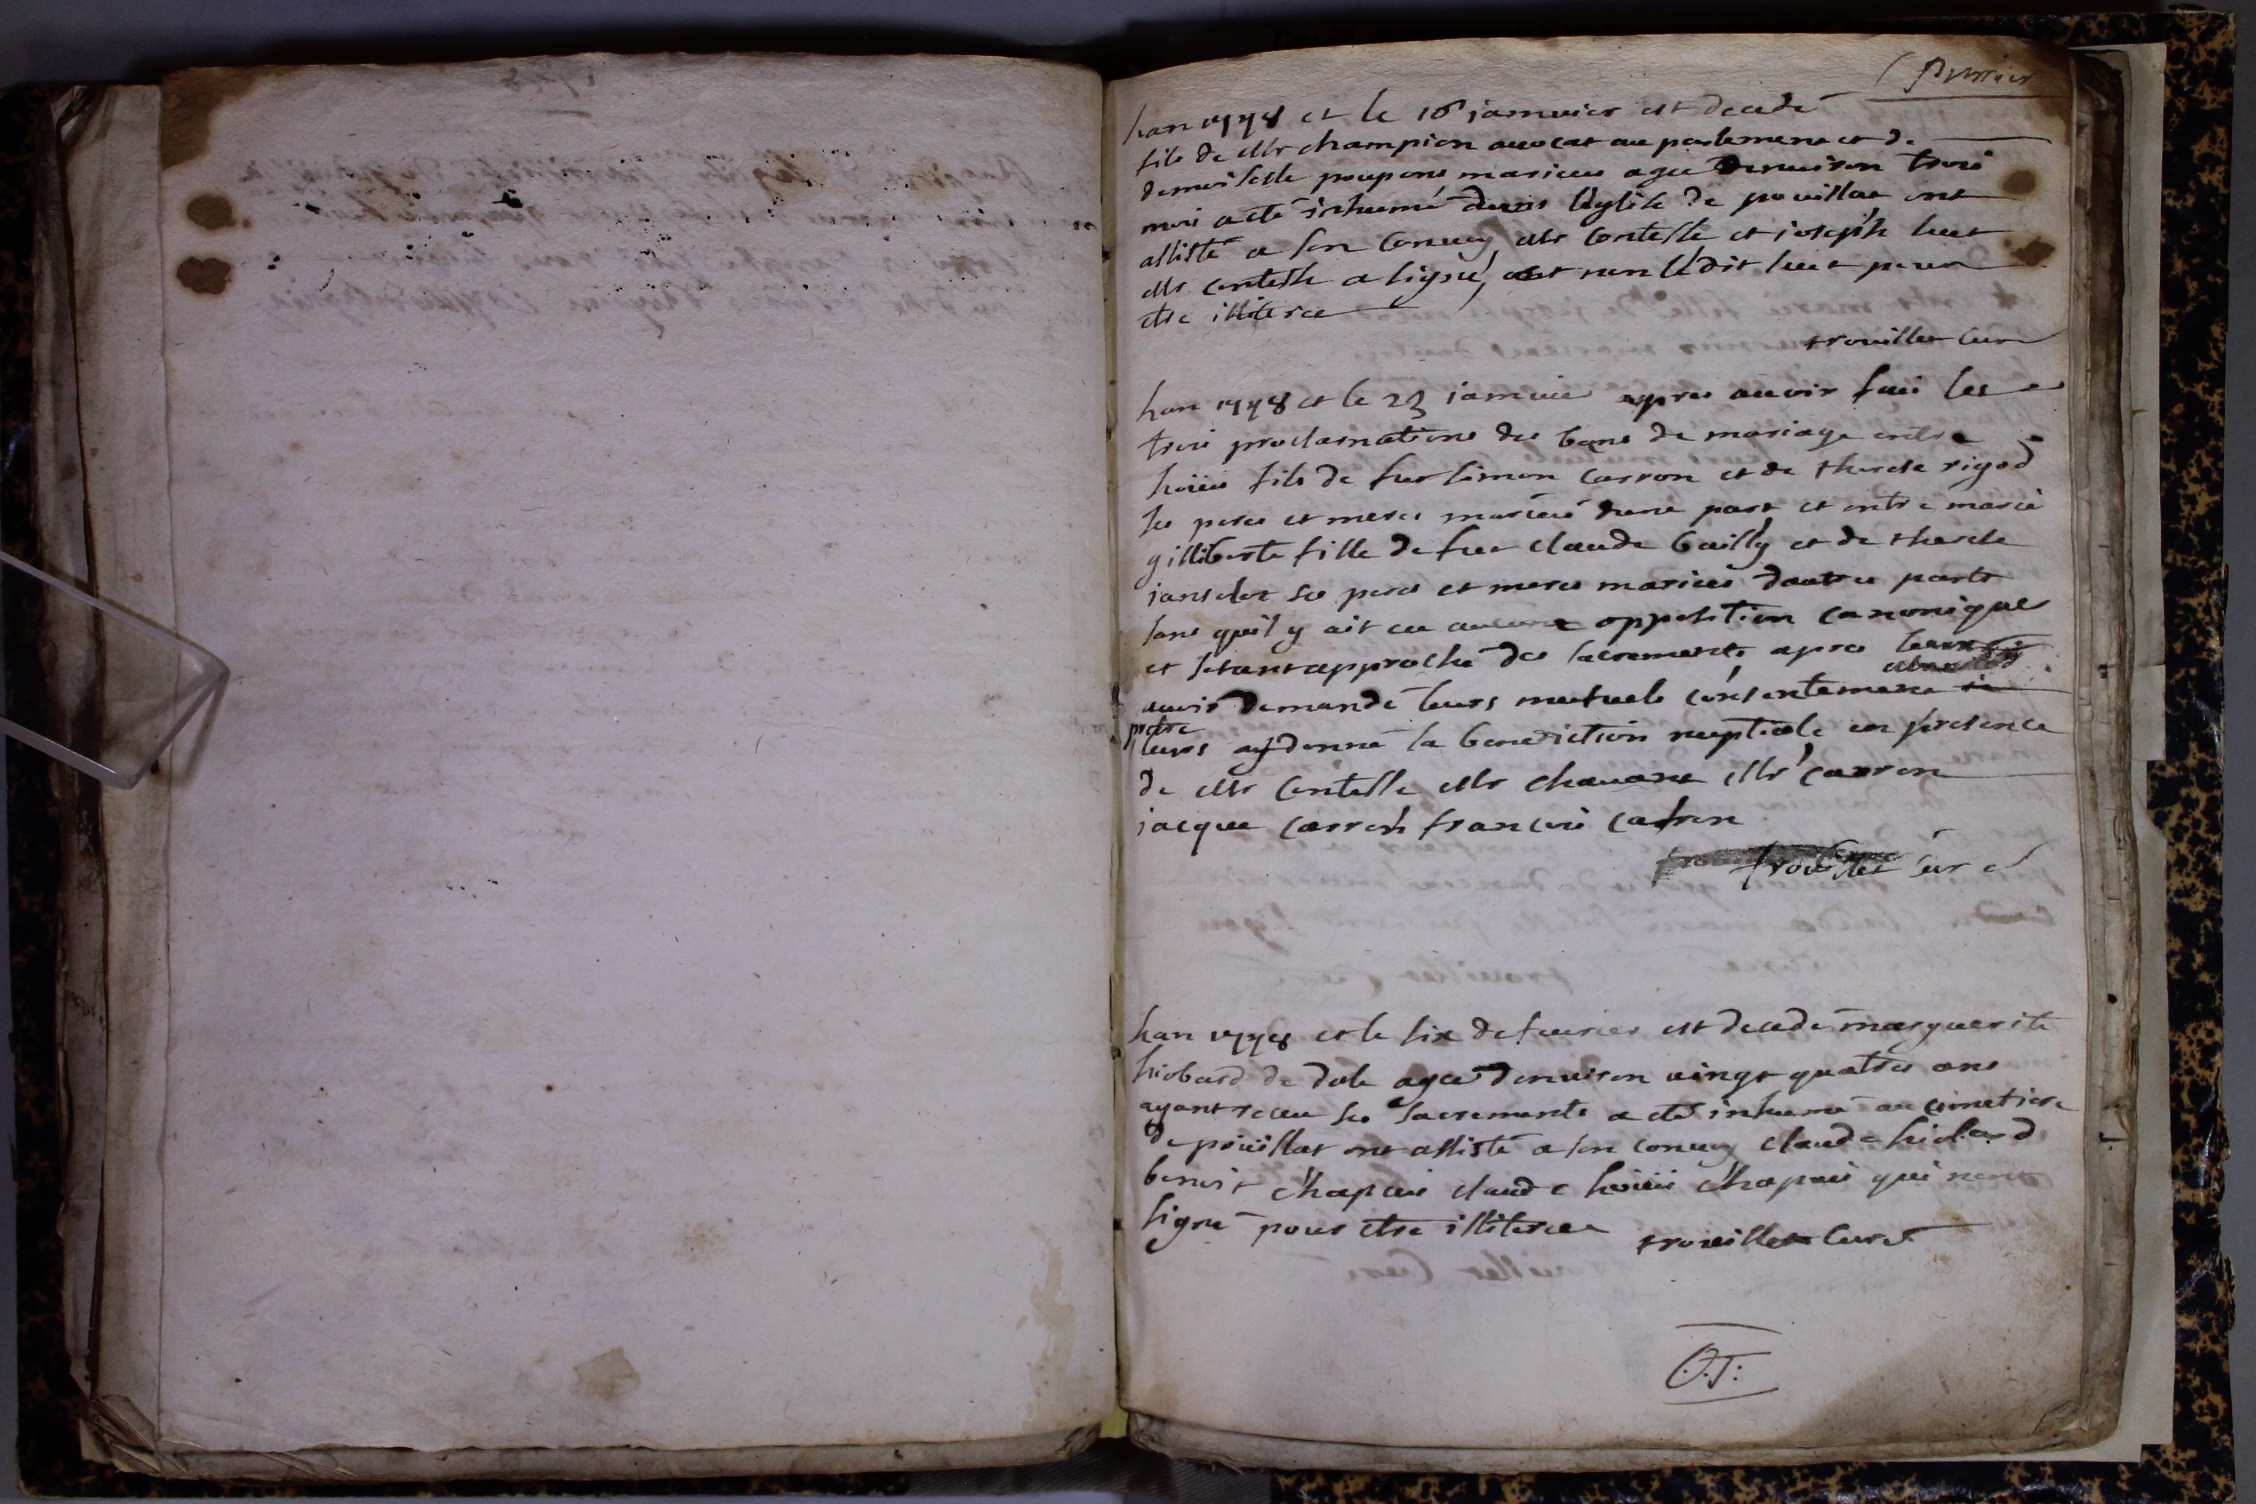 premier
lan 1748 et le 16 janvuier est decedé
fils de Mr champion auocat au parlement et de
demoiselle poupons mariees agee denuiron trois
moi a été inhumé dans leglise de pouillat ont
assisté a son conuoy Mr contesse et joseph huet
Mr contesse a signé, et non ledit huet pour
etre illiteree
trouillet curé
lan 1748 et le 23 januier apres auvoir fait les
trois proclamations des bans de mariage entre
hoüis fils de feu simon carron et de therese rigod
ses peres et meres mariées dune part et entre marie
gilliberte fille de feu claude bailly et de therese
janselot ses peres et meres mariées dautres parts
sans quil y ait eu aucune opposition canonique
et setant approché des sacrements apres
auoir demandé leurs mutuels consentemens
pretre
leurs ay donné la benediction nuptiale en presence
de Mr contesse Mr chauane Mr carron
jacque carron francois carron
trouillet curé
lan 1748 et le six de feurier est decedé marguerite
hiobard de dole agee denuiron vingt quatres ans
ayant receu ses sacrements a eté inhumé au cimetiere
de pouillat ont assisté a son conuoy claude hiobard
benoit chapuis claude hoüis chapuis qui nont
signé pour etre illiteree trouillet curé
O.J: